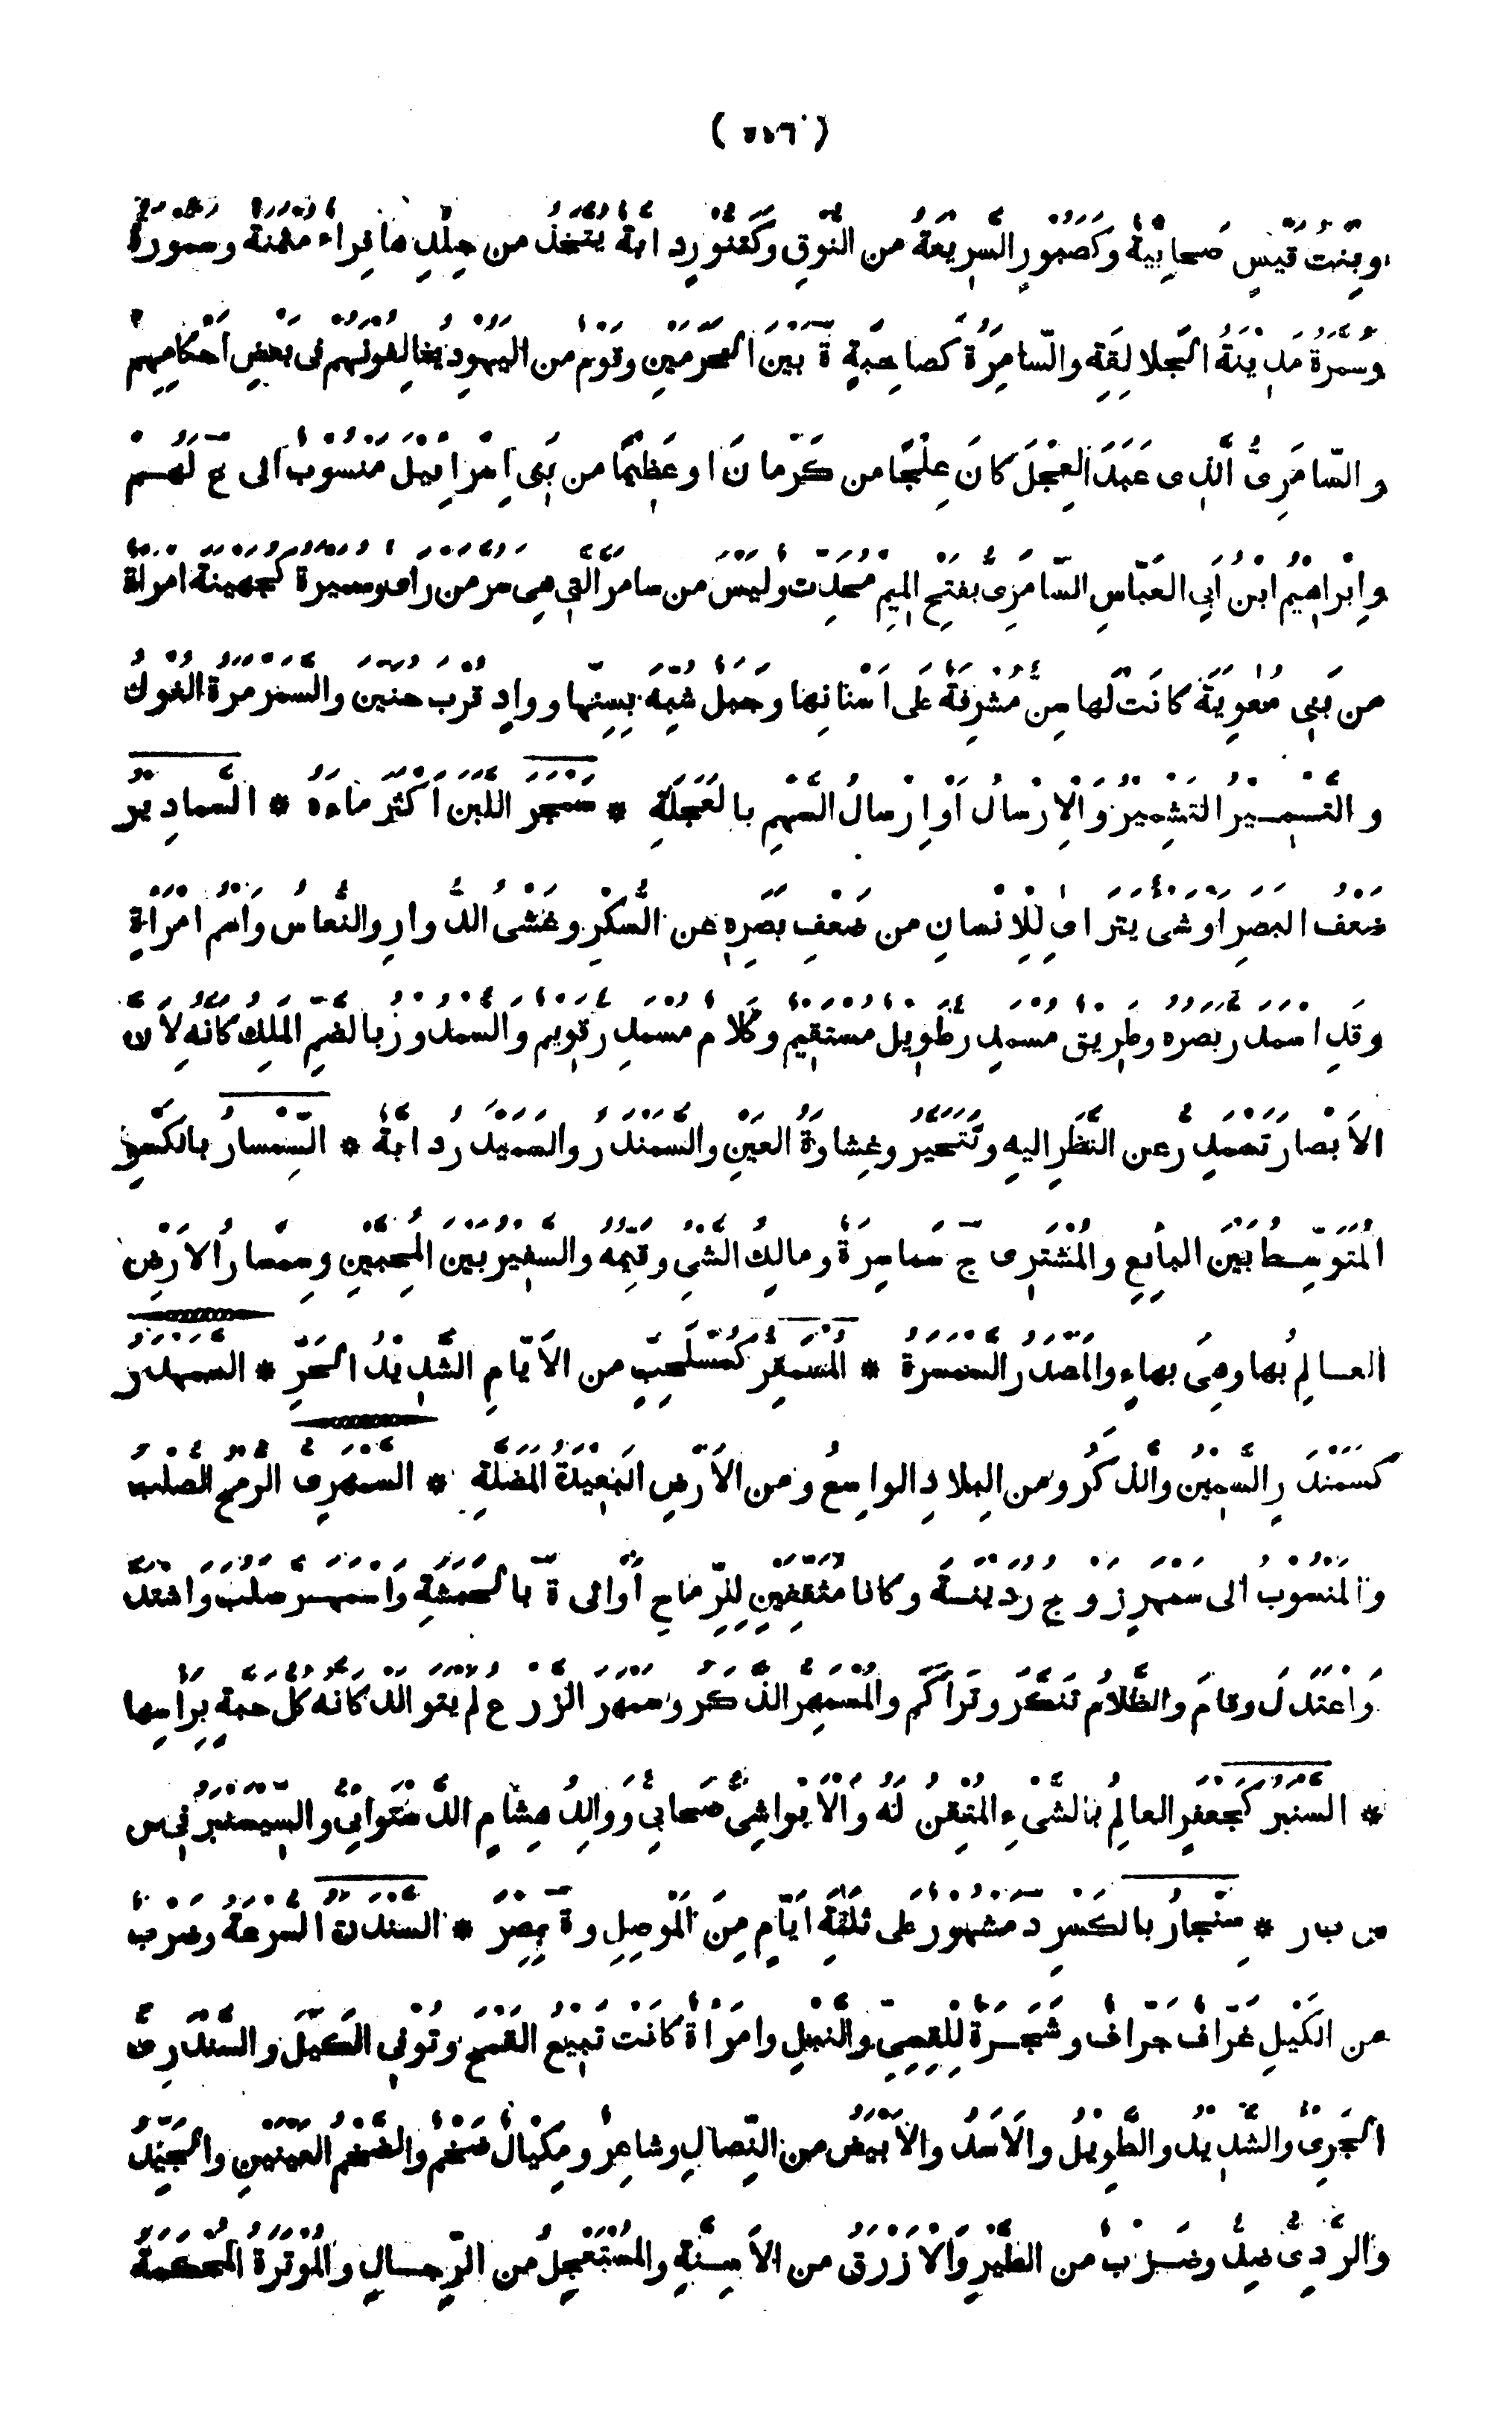 ( ٥٥٦ )
وبِنْتُ قَيْسٍ صَحابِيَّةٌ وكَصَبُورٍ السَّرِيعَةُ من النُّوقِ وكَتَنُّورٍ دابَّةٌ يُتَّخَذُ من جِلْدِها فِراءٌ مُثْمِنَةٌ وسَمُّورَةُ
وسَمُّرَةُ مَدِينَةُ الجَلالِقَةِ والسّامِرَةُ كصاحِبَةٍ ة بَيْنَ الحَرَمَيْنِ وقَوْمٌ من اليَهُودِ يُخالِفُونَهُمْ فى بَعْضِ أحْكامِهِمْ
والسّامِرِىُّ الَّذِى عَبَدَ العِجْلَ كانَ عِلْجًا من كَرْمانَ او عَظِيمًا من بَنِى اِسْرائِيلَ مَنْسُوبٌ الى ع لَهُمْ
وإبْراهِيمُ ابْنُ أبِى العَبّاسِ السّامَرِىُّ بفَتْحِ المِيمِ مُحَدِّثٌ ولَيْسَ من سامَرّا الَّتِى هِى سُرَّ مَنْ رَأَى وسُمَيْرَةُ كجُهَيْنَةَ امْرَأَةٌ
من بَنِى مُعٰوِيَةَ كانَتْ لَها سِنٌّ مُشْرِفَةٌ عَلى أسْنانِها وجَبَلٌ شُبِّهَ بِسِنِّها ووادٍ قُرْبَ حُنَيْنٍ والسَّمَرْمَرَةُ الغُوْلُ
والتَّسْمِيرُ التَّشْمِيرُ والإرْسالُ أوْ إرْسالُ السَّهْمِ بالعَجَلَةِ * سَمْجَرَ اللبن أكْثَرَ ماءه * السَّمادِيرُ
ضَعْفُ البَصَرِ أوْ شَىْءٌ يَتَراءَى لِلْإنْسانِ من ضَعْفِ بَصَرِهِ عن السُّكْرِ وغَشْىِ الدُّوارِ والنُّعاسُ واسْمُ امْرَأَةٍ
وقَدِ اسْمَدَرَّ بَصَرُهُ وطَرِيقٌ مُسْمَدِرٌّ طَوِيلٌ مُسْتَقِيمٌ وكَلامٌ مُسْمَدِرٌّ قَوِيمٌ والسُّمْدُورُ بالضَّمِّ المَلِكُ كأنَّهُ لِأَنَّ
الأبْصارَ تَسْمَدِرُّ عن النَّظَرِ إليهِ وتَتَحَيَّرُ وغِشاوَةُ العَيْنِ والسَّمَنْدَرُ والسَّمَيْدَرُ دابَّةٌ * السِّمْسارُ بالكَسْرِ
المُتَوَسِّطُ بَيْنَ البائِعِ والمُشْتَرِى ج سَماسِرَةٌ ومالِكُ الشَّىْءِ وقَيِّمُهُ والسَّفِيرُ بَيْنَ المُحِبَّيْنِ وسِمْسارُ الأرْضِ
العالِمُ بها وهِىَ بهاءٍ والمَصْدَرُ السَّمْسَرَةُ * المُسْمَقِرُّ كمُسْلَحِبٍّ من الأيّامِ الشَّدِيدُ الحَرِّ * السَّمَهْدَرُ
كسَمَنْدَرٍ السَّمِينُ والذَّكَرُ ومن البِلادِ الواسِعُ ومن الأرْضِ البَعِيدَةُ المُضِلَّةُ * السَّمْهَرِىُّ الرُّمْحُ الصُّلْبُ
والمَنْسُوبُ الى سَمْهَرٍ زَوْجِ رُدَيْنَةَ وكانا مُثَقِّفَيْنِ لِلرِّماحِ أوْ الى ة بالحَبَشَةِ واسْمَهَرَّ صَلُبَ واشْتَدَّ
واعْتَدَلَ وقامَ والظَّلامُ تَنَكَّرَ وتَراكَمَ والمُسْمَهِرُّ الذَّكَرُ وسَمْهَرَ الزَّرْعُ لم يَتَوالَدْ كأنَّهُ كُلُّ حَبَّةٍ بِرَأْسِها
* السَّنْبَرُ كجَعْفَرٍ العالِمُ بالشَّىْءِ المُتْقِنُ لَهُ والأَبْراشِىُّ صَحابِىٌّ ووالِدُ هِشامٍ الدَّسْتَوائِىِّ والسِّيسَنْبَرُ فِى س
س ب ر * سِنْجارُ بالكَسْرِ د مَشْهُورٌ على ثَلٰثَةِ أيّامٍ مِنَ المَوْصِلِ وة بِمِصْرَ * السَّنْدَرَةُ السُّرْعَةُ وضَرْبٌ
من الكَيْلِ غَرّافٌ جَرّافٌ وشَجَرَةٌ لِلْقِسِىِّ والنَّبْلِ وامْرَأَةٌ كانَتْ تَبِيعُ القَمْحَ وتُوفِى الكَيْلَ والسَّنْدَرِىُّ
الجَرِىءُ والشَّدِيدُ والطَّوِيلُ والأَسَدُ والأَبْيَضُ من النِّصالِ وشاعِرٌ ومِكْيالٌ ضَخْمٌ والضَّخْمُ العَيْنَيْنِ والجَيِّدُ
والرَّدِىُّ ضِدٌّ وضَرْبٌ من الطَّيْرِ والأَزْرَقُ من الأَسِنَّةِ والمُسْتَعْجِلُ من الرِّجالِ والمُوْتَرَةُ المُحْكَمَةُ